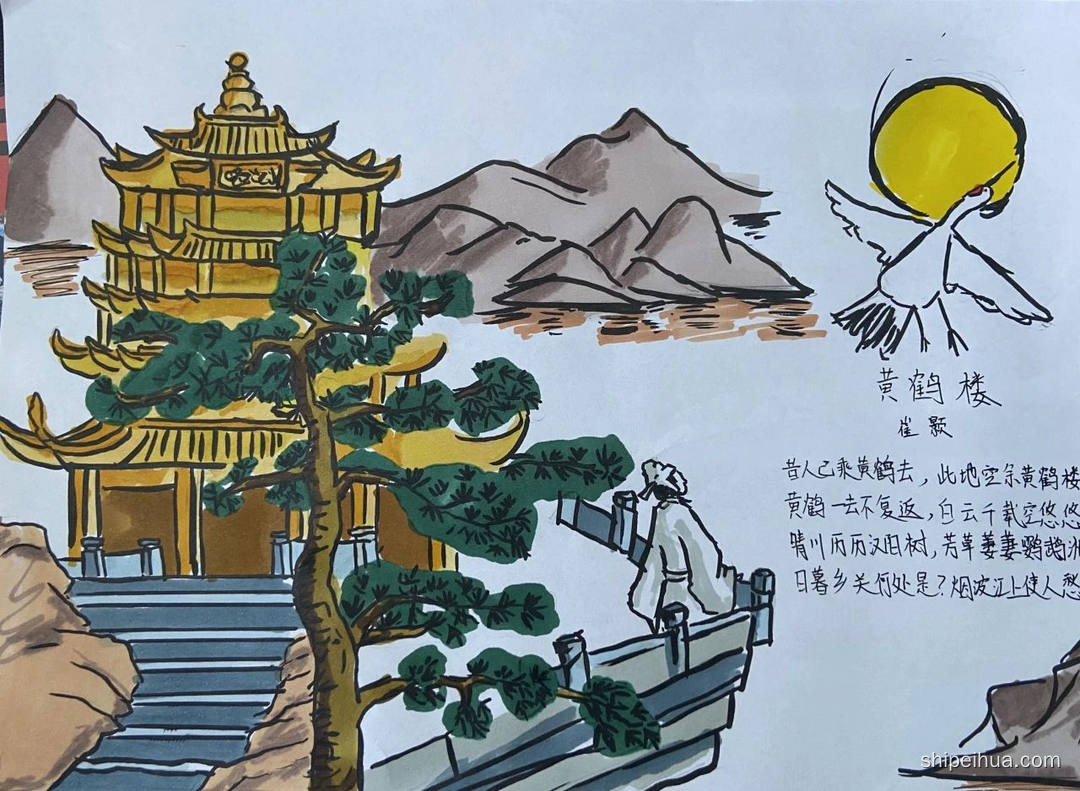 黄鹤楼
崔颢
昔人已乘黄鹤去，此地空余黄鹤楼
黄鹤一去不复返，白云千载空悠悠
晴川历历汉阳树，芳草萋萋鹦鹉洲
日暮乡关何处是？烟波江上使人愁
shipeihua.com